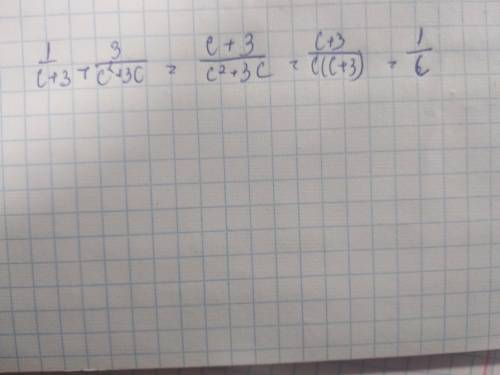 1/(c+3) + 3/(c²+3c) = (c+3)/(c²+3c) = (c+3)/(c(c+3)) = 1/c